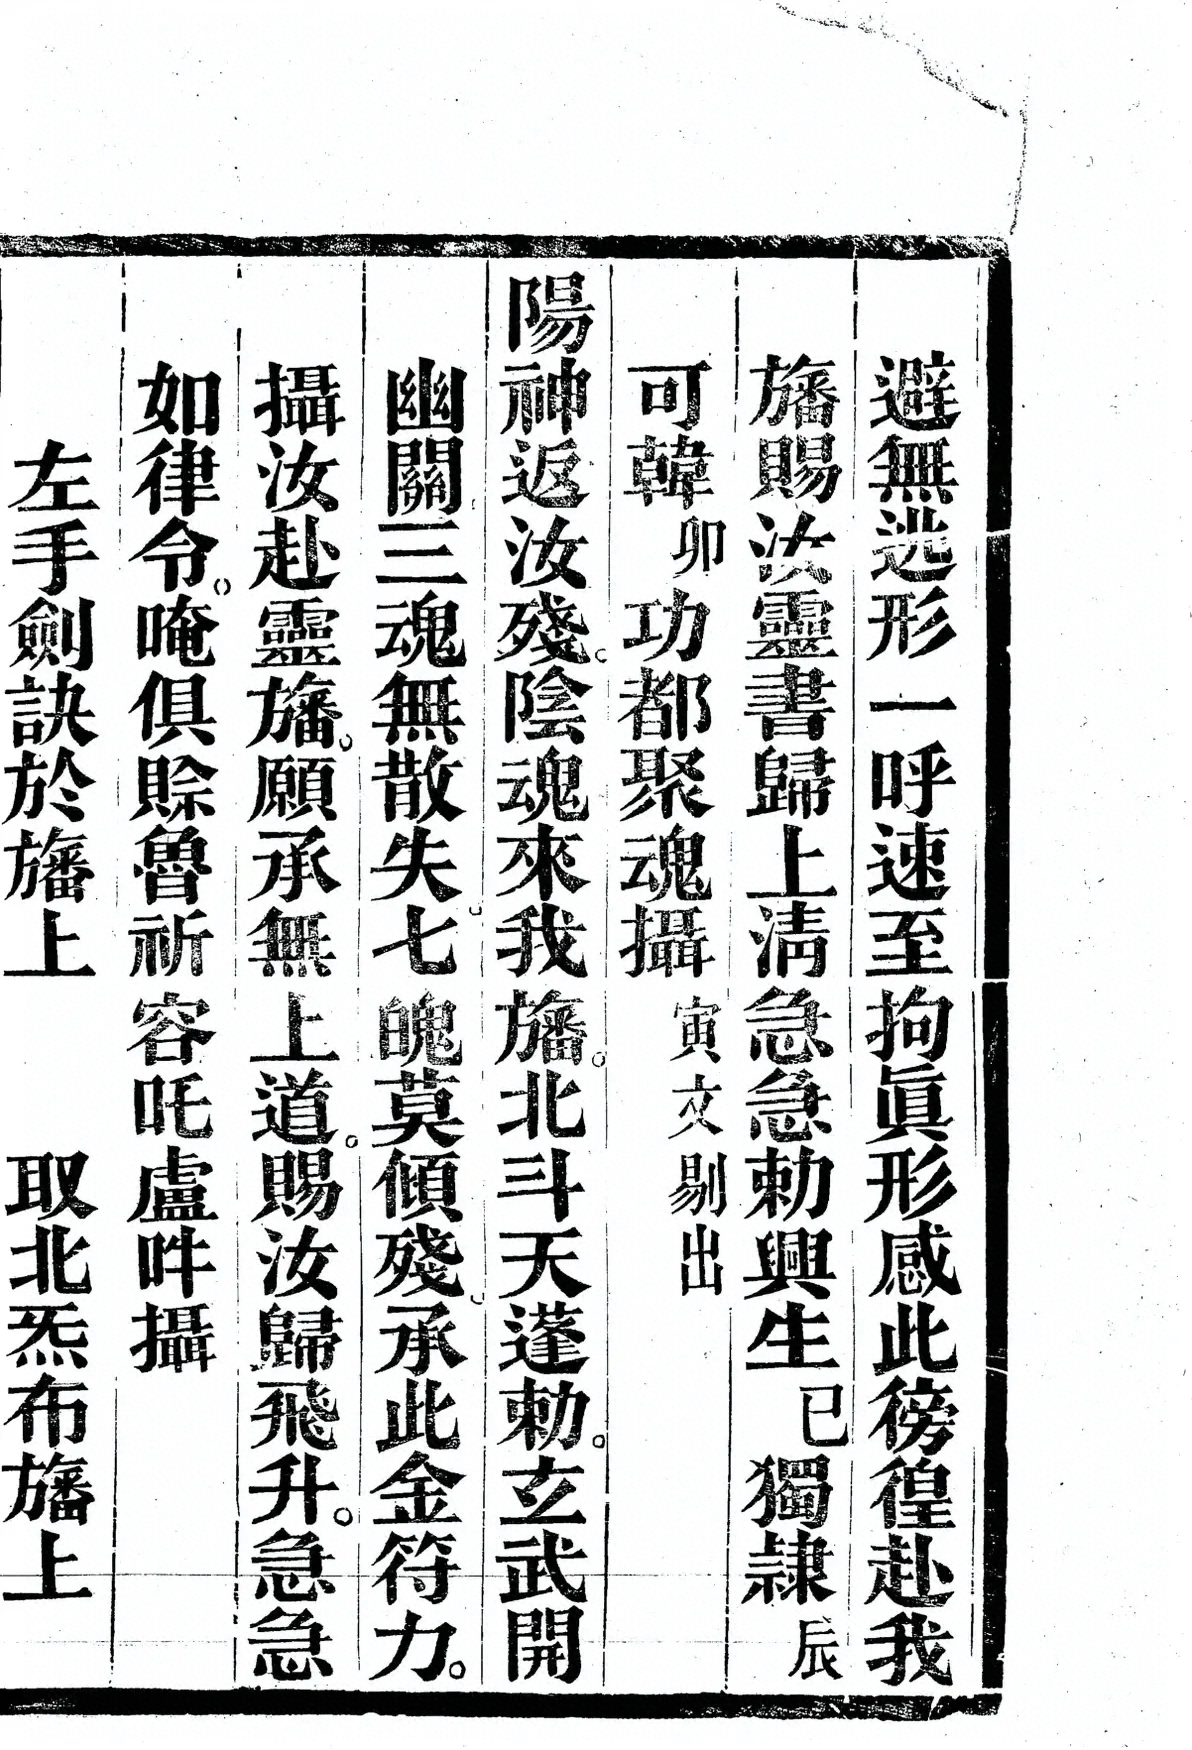 避無逃形一呼速至拘眞形感此徬徨赴我
旛賜汝靈書歸上淸急急勅興生巳獨隷辰
可韓卯功都聚魂攝寅文剔出
陽神返汝殘。陰魂來我旛。北斗天蓬勅。玄武開
幽關三魂無散失。七魄莫傾殘。承此金符力。
攝汝赴靈旛。願承無上道。賜汝歸飛升。急急
如律令。唵俱賖魯祈容吒盧吽攝
左手劍訣於旛上　取北炁布旛上